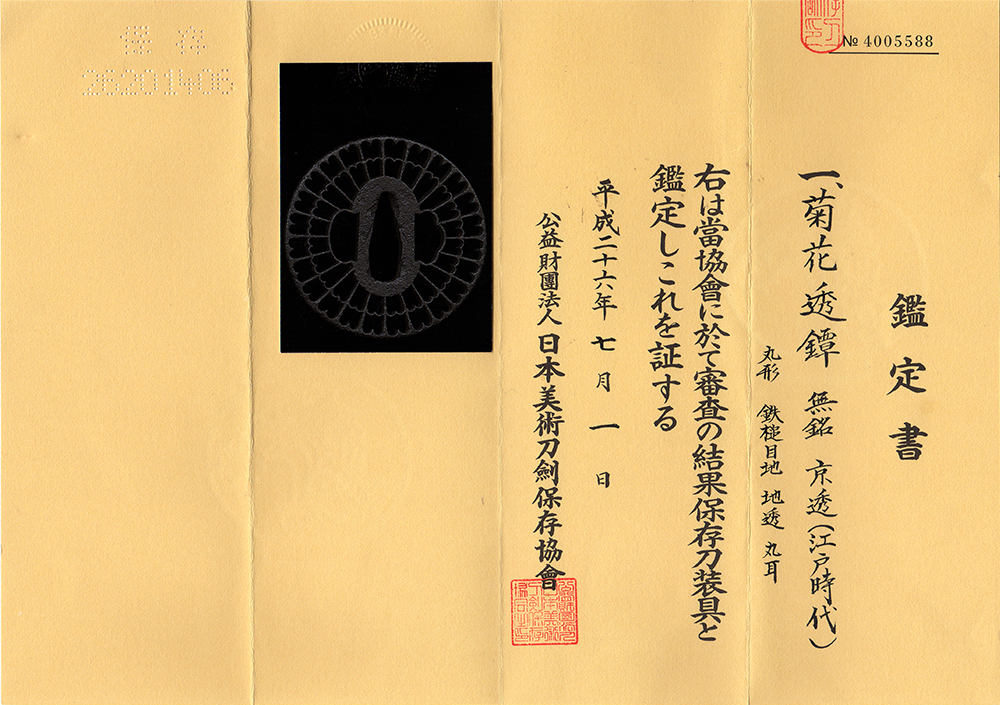 № 4005588
鑑定書
一、菊花透鐔 無銘 京透(江戸時代)
丸形 鉄槌目地 地透 丸耳
右は當協會に於て審査の結果保存刀装具と
鑑定しこれを証する
平成二十六年七月一日
公益財團法人 日本美術刀劍保存協會
保存
26201406